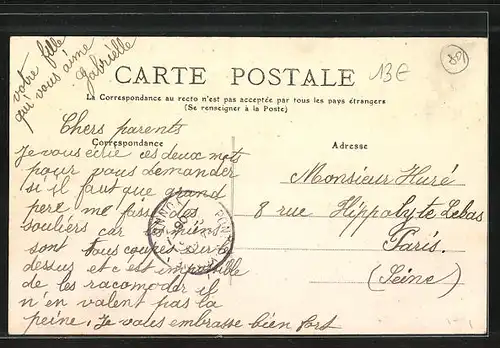 votre fille
qui vous aime
Gabrielle
CARTE POSTALE
13€
801
La Correspondance au recto n'est pas acceptée par tous les pays étrangers
(Se renseigner à la Poste)
Correspondance
Adresse
Chers parents
Je vous écrie ces deux mots
pour vous demander
si il faut que grand
pere me fasse des
souliers car les miens
sont tous coupés sur le
dessus et c'est impossible
de les racomoder il
n'en valent pas la
peine. Je vous embrasse bien fort
Monsieur Huré
8 rue Hippolyte Lebas
Paris.
(Seine)